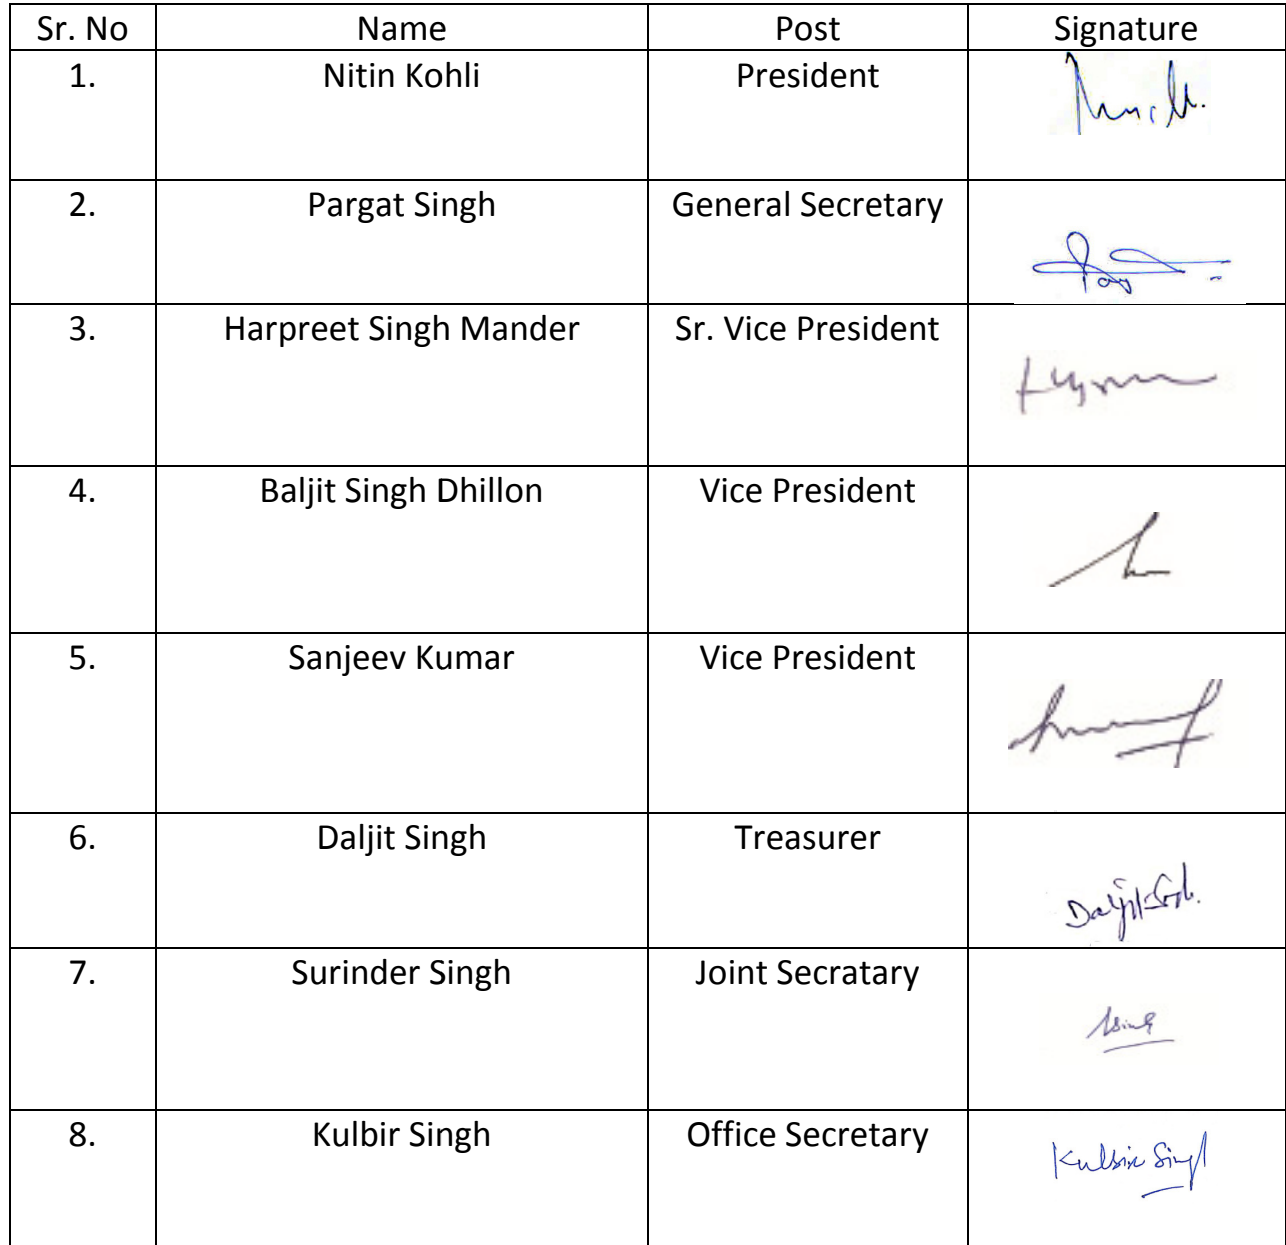 Sr. No Name Post Signature
1. Nitin Kohli President
2. Pargat Singh General Secretary
3. Harpreet Singh Mander Sr. Vice President
4. Baljit Singh Dhillon Vice President
5. Sanjeev Kumar Vice President
6. Daljit Singh Treasurer
Daljit Singh.
7. Surinder Singh Joint Secratary
8. Kulbir Singh Office Secretary
Kulbir Singh